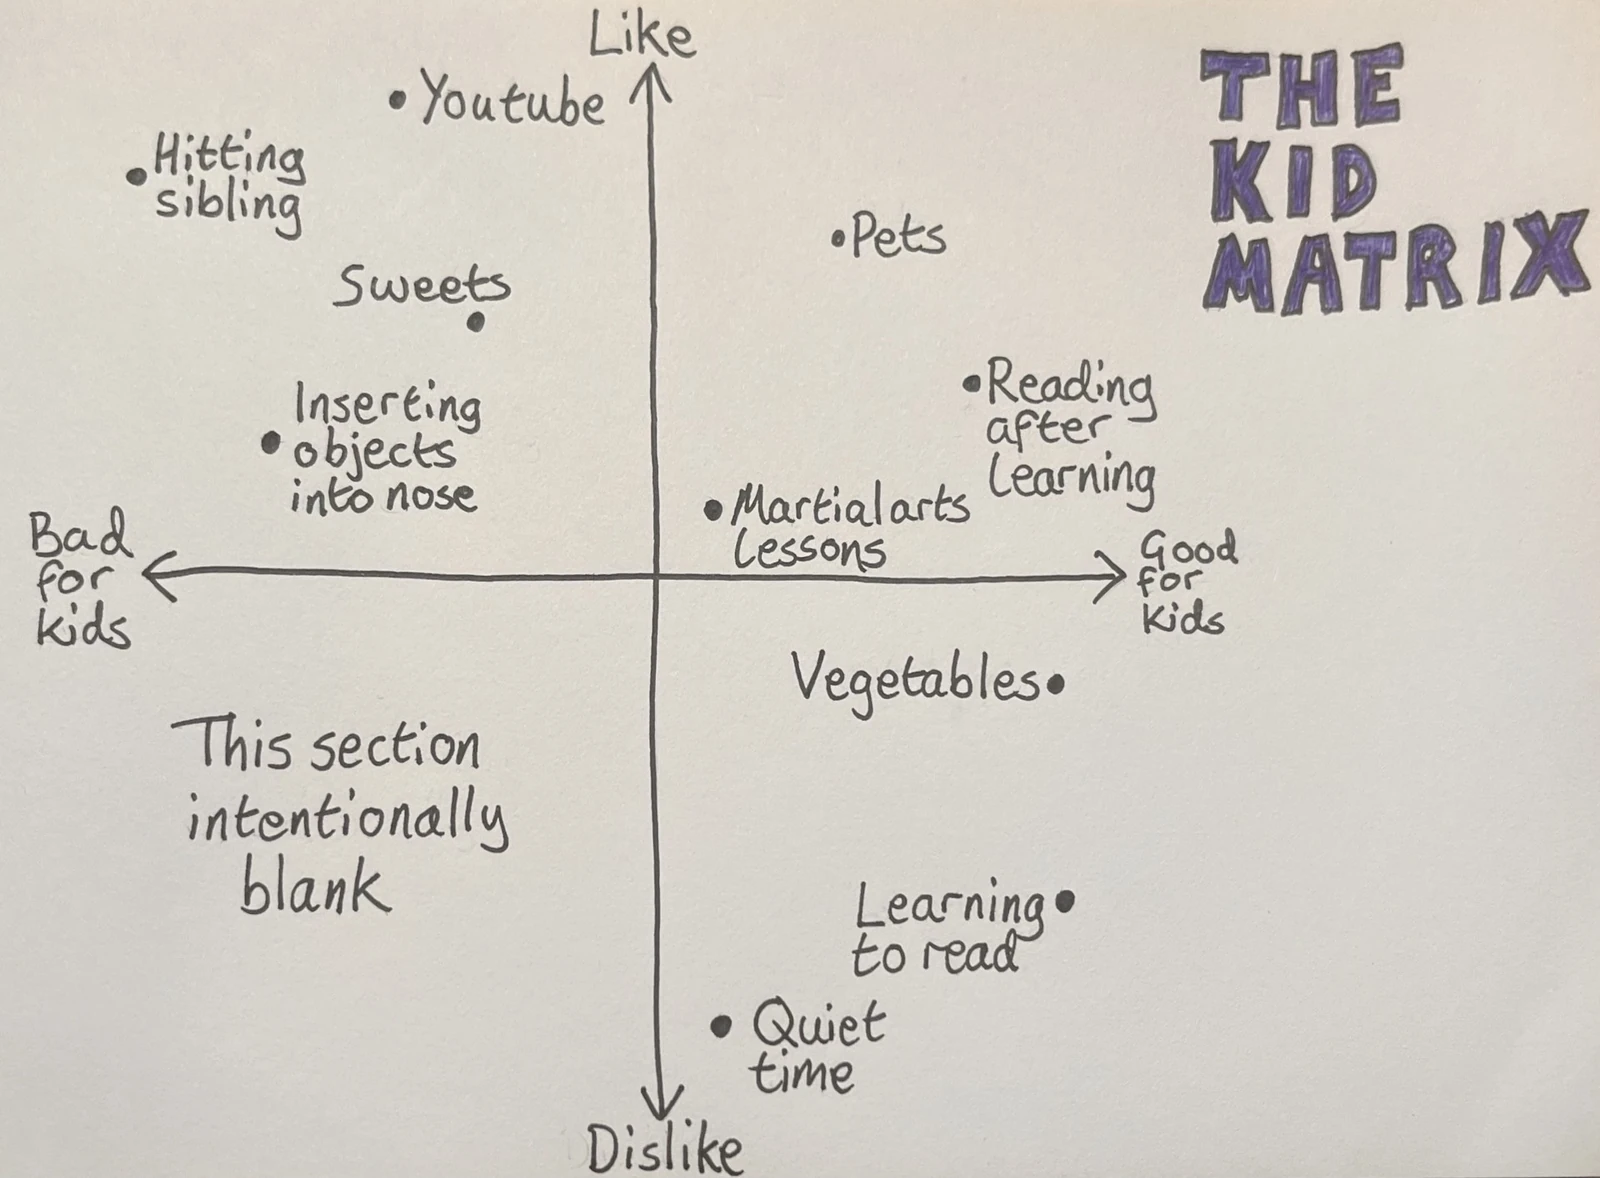 Like
THE
KID
MATRIX
Youtube
Hitting
sibling
Pets
Sweets
Reading
after
learning
Inserting
objects
into nose
Martial arts
lessons
Bad
for
kids
Good
for
kids
Vegetables
This section
intentionally
blank
Learning
to read
Quiet
time
Dislike